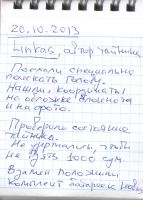 20.10.2013
Linkas, автор тайника
Поехали специально
поискать Голову.
Нашли, координаты
на обложке блокнота
и на фото.
Проверили состояние
тайника.
Не удержались, чтобы
не взять 1000 сум.
Взамен положили
комплект батареек